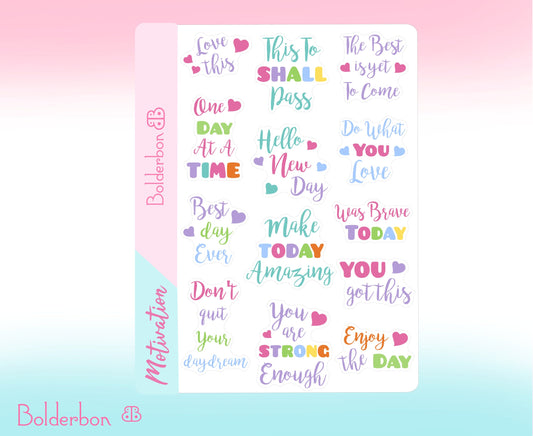 Love
this
This To
SHALL
Pass
The Best
is yet
To Come
One
DAY
At A
TIME
Hello
New
Day
Do What
YOU
Love
Best
day
Ever
Make
TODAY
Amazing
Was Brave
TODAY
YOU
got this
Don't
quit
Your
daydream
You
are
STRONG
Enough
Enjoy
the DAY
Bolderbon BB
Motivation
Bolderbon BB